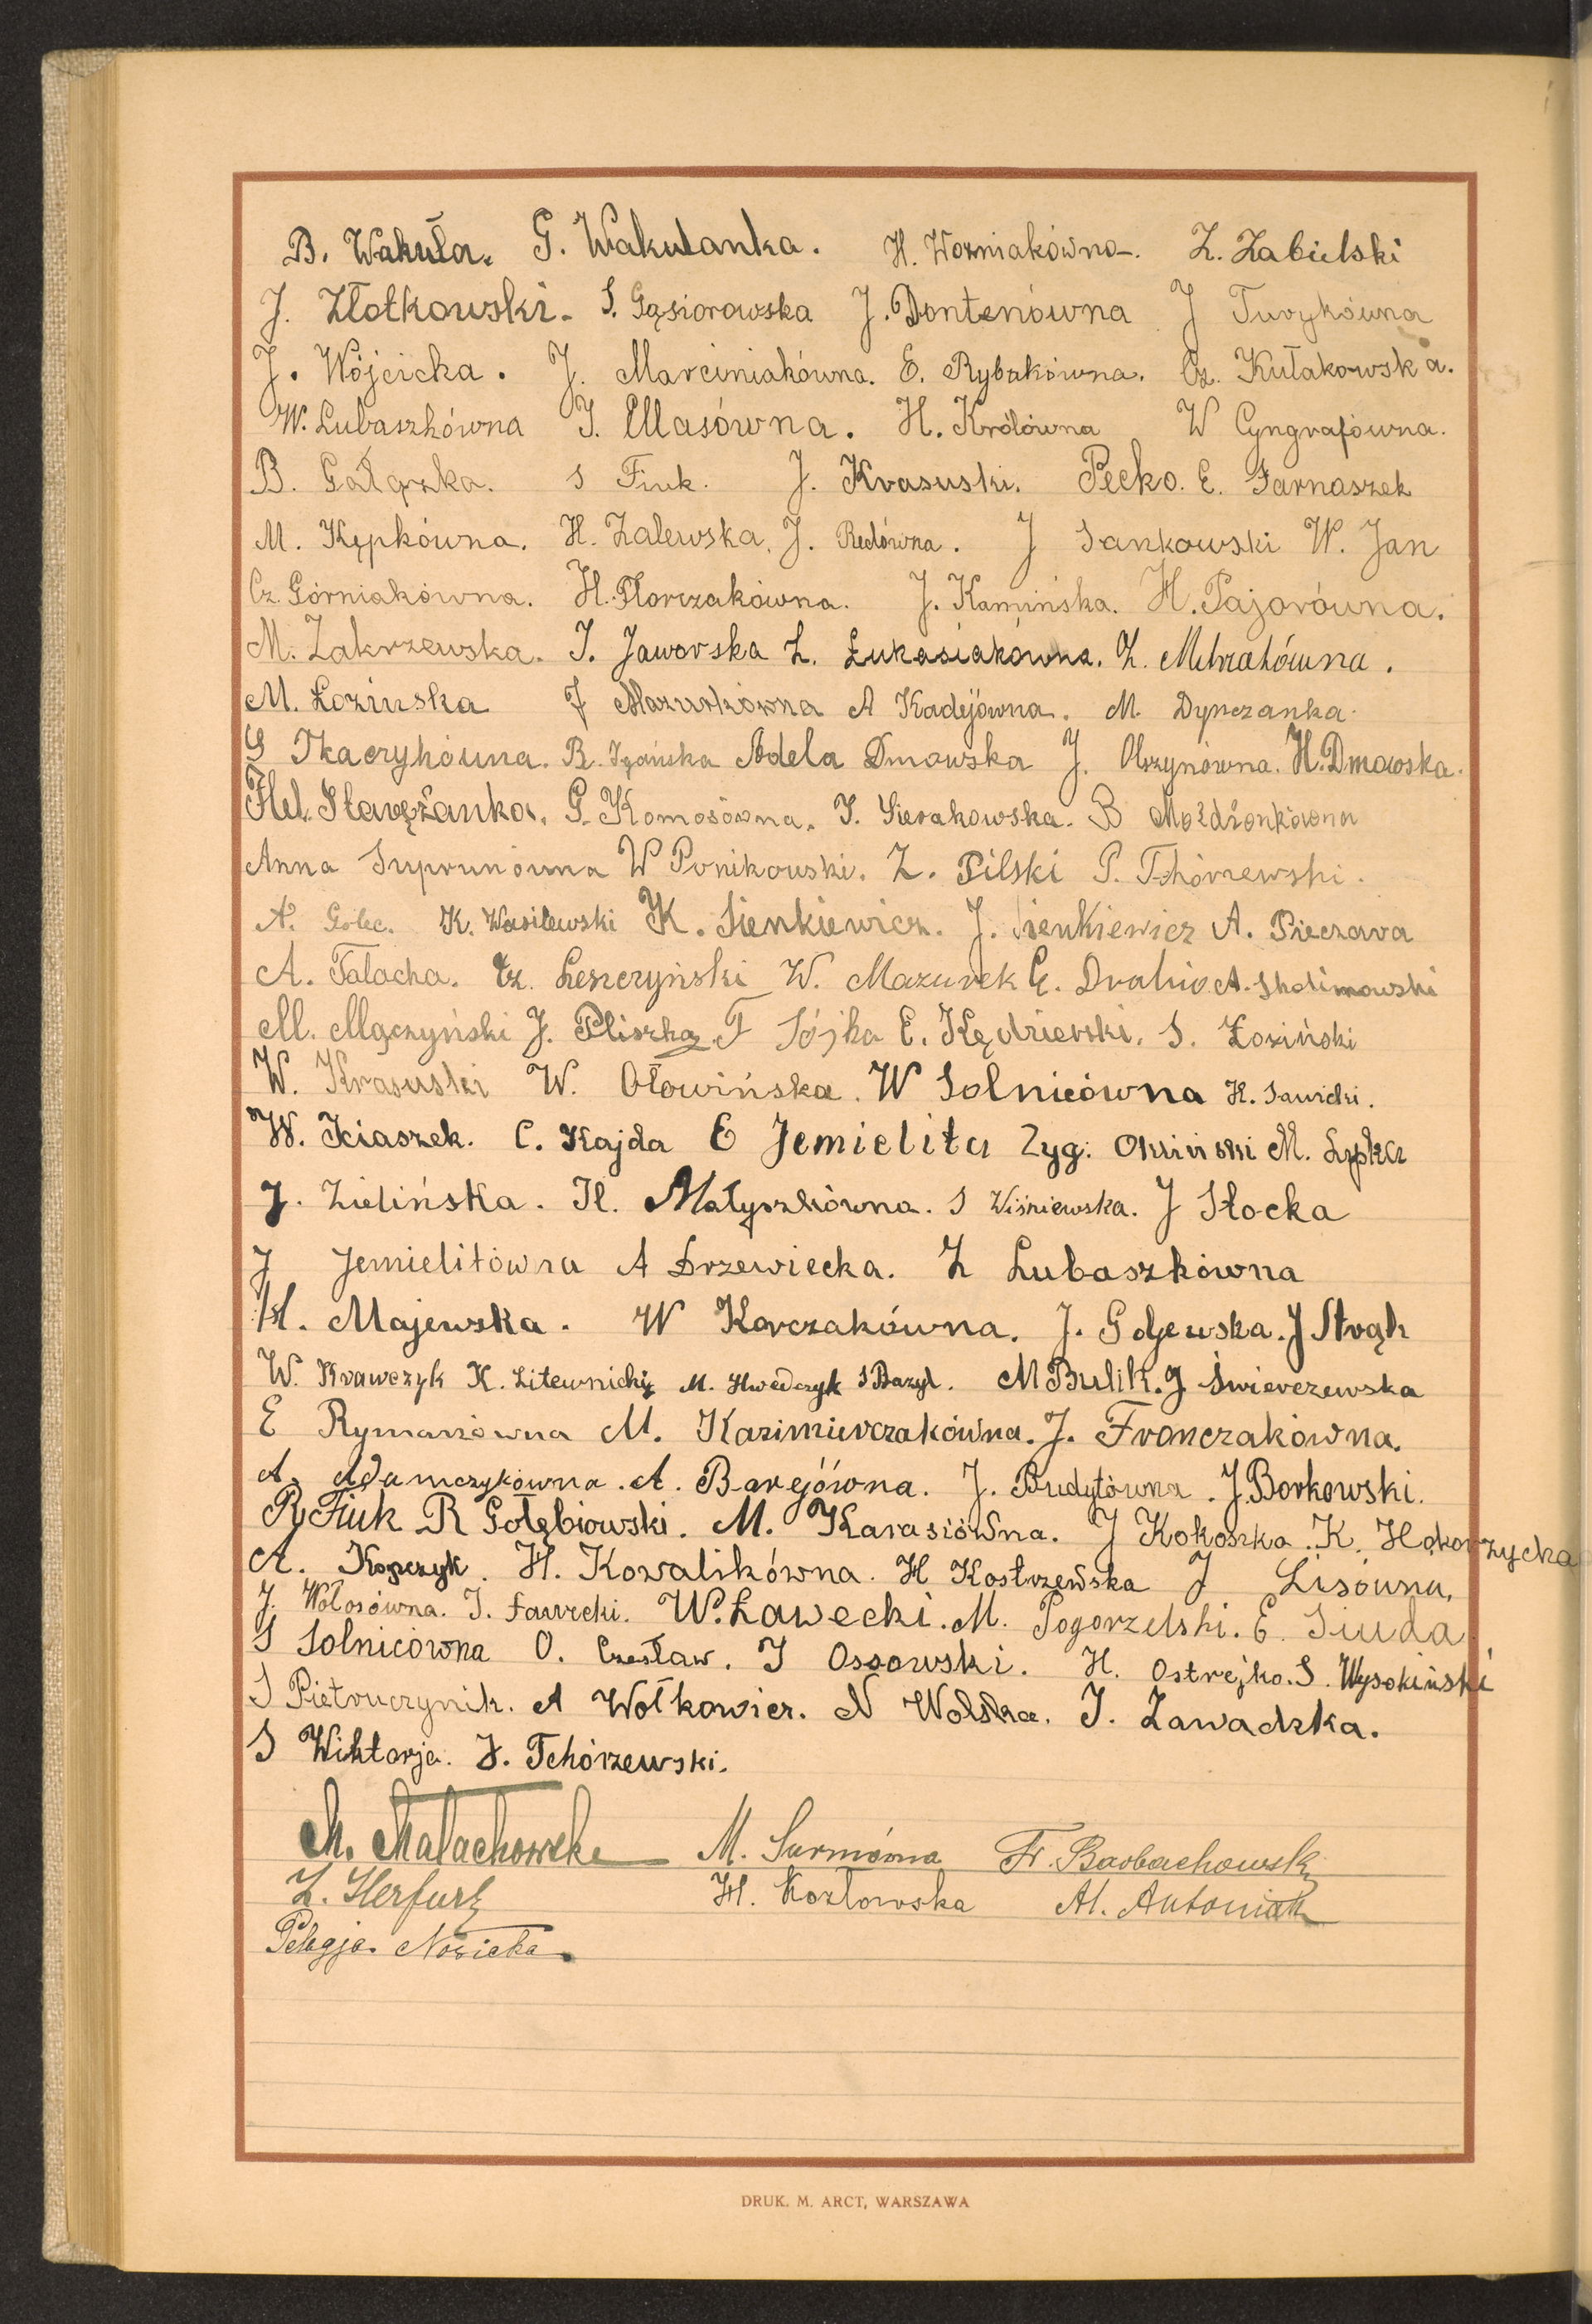 B. Wakuła. G. Wakulanka. H. Wozniakówna. Z. Zabielski
J. Złotkowski. S. Gąsiorowska J. Dontenówna J Turykówna
J. Wójcicka. J. Marciniakówna. E. Rybakówna. Cz. Kułakowska.
W. Lubaszkówna J. Masówna. H. Królówna W Cyngrafówna.
B. Gałązka. S Fiuk. J. Krasuski. Pećko. E. Farnaszek
M. Kępkówna. H. Zalewska, J. Redówna. J Sankowski W. Jan
Cz. Górniakówna. H. Florczakówna. J. Kamińska. H. Pajorówna.
M. Zakrzewska. I. Jaworska L. Łukasiakówna. Z.
M. Łozinska J Mazurkówna A Kadejówna. M. Dypczanka.
G Tkaczykówna. R. Izańska Adela Dmowska J. Olszynówna. H. Dmowska.
Hel. Stawężanka. G. Komosówna. I. Sierakowska. B Możdżonkówna
Anna Suprunówna W Ponikowski. Z. Pilski P. Tchórzewski.
A. Golec. K. Wasilewski K. Sienkiewicz. J. Sienkiewicz A. Pieczara
A. Talacha. Cz. Leszczyński W. Mazurek G. Drabio A. Skolimowski
M. Mączyński J. Pliszka F Sójka E. Kędzierski. S. Łoziński
W. Krasuski W. Ołowińska. W Solnicówna H. Sawicki.
W. Kiaszek. C. Kajda E Jemielita Zyg. Okniński M. Łypka
J. Zielińska. H. Małyszkówna. S Wiśniewska. J Stocka
J Jemielitówna A Drzewiecka. Z Lubaszkówna
H. Majewska. W Korczakówna. J. Golewska. J Strąk
W. Krawczyk K. Litewnicki M. Hwedczyk S Bazyl. M Bulik. J Świerczewska
E Rymanówna M. Kazimierczakówna. J. Franczakówna.
A. Adamczykówna. A. Barejówna. J. Budytówna. J. Borkowski.
R Fiuk R Gołębiowski. M. Karasiówna. J Kokoszka. K. Hokorzycka
A. Kopczyk. H. Kowalikówna. H Kostrzewska J Lisówna,
J. Wołosówna. I. Ławecki. W. Ławecki. M. Pogorzelski. E. Siuda
S Solnicówna O. Czesław. J Ossowski. H. Ostrejko. S. Wysokiński
S Pietruczynik. A Wołkowicz. N Wolska. I. Zawadzka.
S Wiktorja. J. Tchórzewski.
M. Małachowska M. Surmówna Fr. Barbachowski
Z. Herfurt H. Kozłowska Al. Antoniak
Pelagja Nowicka.
DRUK. M. ARCT, WARSZAWA